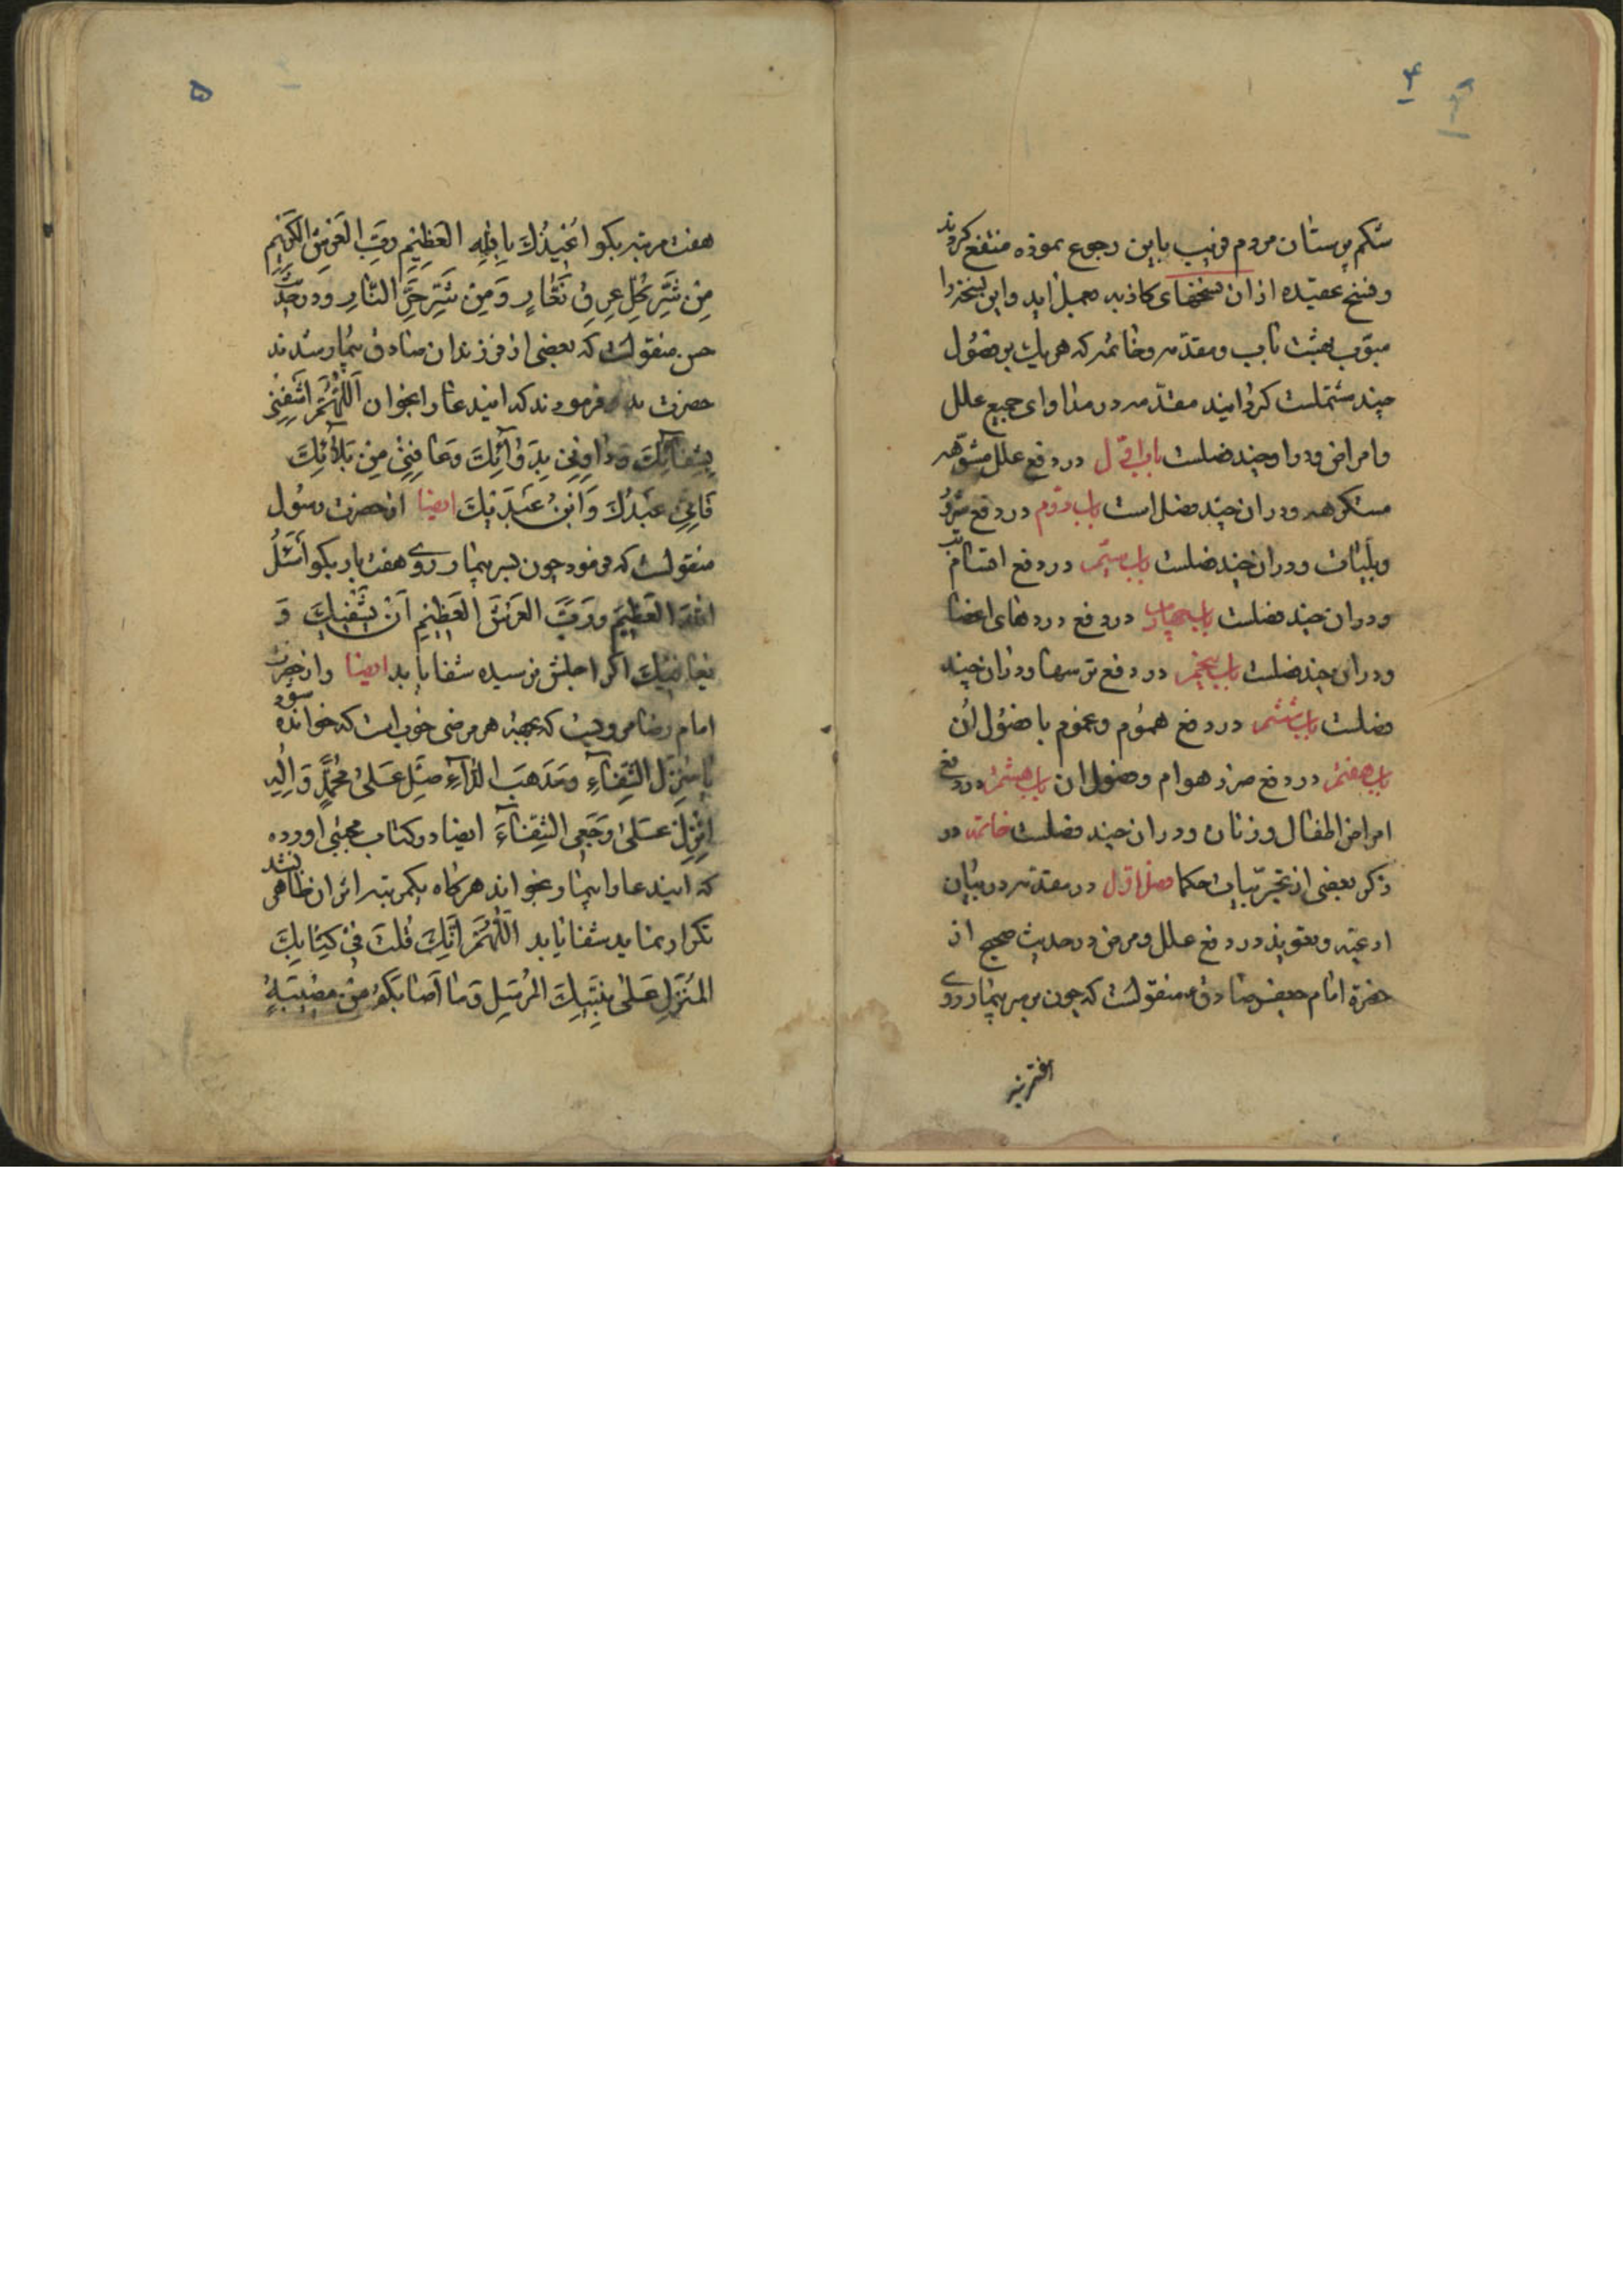 ۴
شکم پرستان مردم فریب باین رجوع نموده منتفع کردند
و فسخ عقیده از ان نسخهای کاذبه بعمل اید و این نسخه را
مبوّب بهشت باب و مقدّمه و خاتمه که هریك بر فصُول
چند مشتملست کردانید مقدّمه در مداوای جمیع علل
و امراض و دوا و چند فصلست باب اوّل در دفع علل مشوّهه
مستکرهه و در ان چند فصل است باب دوّم در دفع شرُور
و بلیّات و در ان چند فصلست باب سیّم در دفع اقسام تب
و در ان چند فصلست باب چهارم در دفع دردهای اعضا
و در ان چند فصلست باب پنجم در دفع ترسها و در ان چند
فصلست باب ششم در دفع همُوم و غموم با فصُول ان
باب هفتم در دفع ضرر هوام و فصول ان باب هشتم در دفع
امراض اطفال و زنان و در ان چند فصلست خاتمه در
ذکر بعضی از مجرّبات حکما فصل اوّل در مقدّمه در بیان
ادعیّه و تعویذ در دفع علل و مرض در حدیث صحیح از
حضرة امام جعفر صادق ع منقولست که چون بر سر بیمار روی
هفت مرتبه
۵
هفت مرتبه بکو اُعْیذُكَ بِاللهِ العَظِیْمِ رَبِّ العَرْشِ الکَرِیْمِ
مِنْ شَرِّ کُلِّ عِرْقٍ نَعّٰارٍ وَمِنْ شَرِّ حَرِّ النّٰارِ و در حدیث
حسن منقولست که بعضی از فرزندان صادق بیمار شدند
حضرت فرمودند که ایندعا را بخوان اَللّٰهُمَّ اشْفِنِی
بِشِفٰآئِكَ وَدٰاوِنِی بِدَوٰآئِكَ وَعٰافِنِیْ مِنْ بَلٰآئِكَ
فَاِنِّی عَبْدُكَ وَابْنُ عَبْدَیْكَ ایضا از حضرت رسُول
منقولست که فرمود چون بسر بیمار روی هفت بار بکو اَسْئَلُ
اللهَ العَظِیمَ وَرَبَّ العَرْشِ العَظِیْمِ اَنْ یَشْفِیَكَ وَ
یُعٰافِیَكَ اکر اجلش نرسیده شفا یابد ایضا و از حضرت
امام رضا مرویست که بجهة هر مرضی خوب است که خوانده شود
یٰا مُنْزِلَ الشِّفٰآءِ وَمُذْهِبَ الدّٰآءِ صَلِّ عَلیٰ مُحَمَّدٍ وَاٰلِهِ
اَنْزِلْ عَلیٰ وَجَعِی الشِّفٰآءَ ایضا در کتاب مجتبی اورده
که ایندعا را بیمار بخواند هرکاه یکمرتبه اثر ان ظاهر نشد
تکرار نماید شفا یابد اَللّٰهُمَّ اِنَّكَ قُلْتَ فِیْ کِتٰابِكَ
المُنْزَلِ عَلیٰ نَبِیِّكَ المُرْسَلِ وَمٰا اَصٰابَکُمْ مِنْ مُصِیْبَةٍ